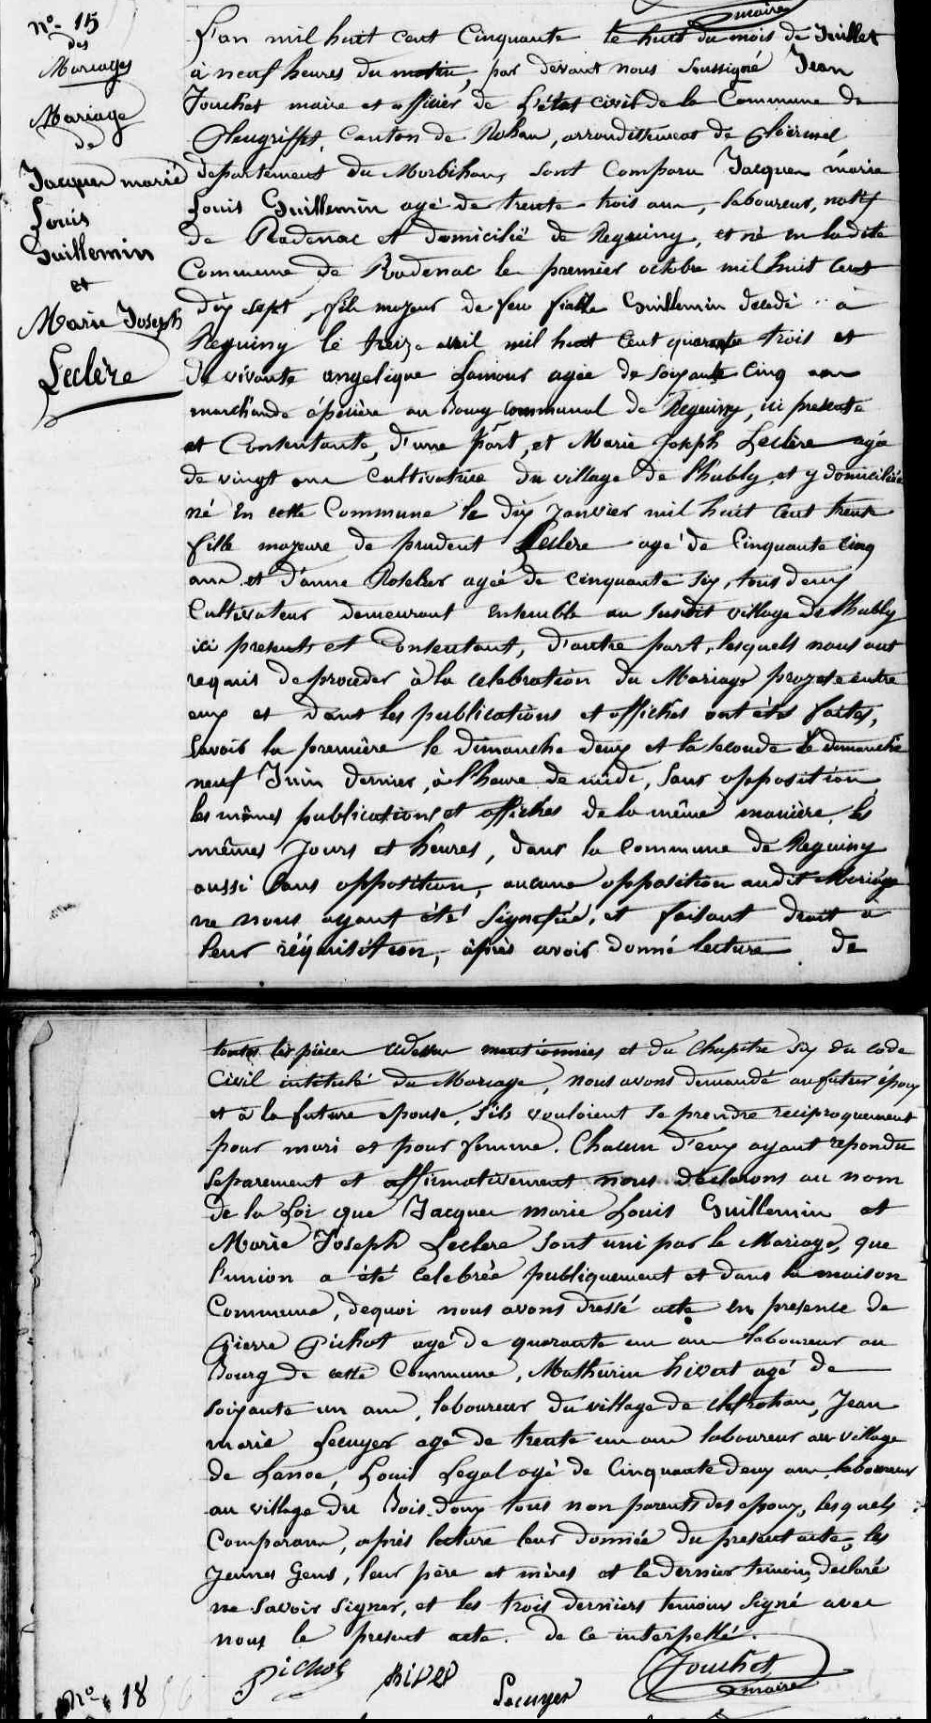 maire
N° 15
des
Mariages
Mariage
de
Jacques marie
Louis
Guillemin
et
Marie Joseph
Leclère
L'an mil huit cent Cinquante le huit du mois de Juillet
à neuf heures du matin, par devant nous soussigné Jean
Jouchet maire et officier de L'état civil de la Commune de
Pleugriffet, Canton de Rohan, arrondissement de Ploërmel
departement du Morbihan, sont Comparu Jacques marie
Louis Guillemin agé de trente trois ans, laboureur, natif
de Radenac et domicilié de Reguiny, et né en la dite
Commune de Radenac le premier octobre mil huit Cent
dix sept, fils majeur de feu Guillemin decedé à
Reguiny le treize avril mil huit Cent quarante trois et
de vivante angelique Lamour agée de soixante Cinq ans
marchande épicière au Bourg communal de Reguiny, ici presente
et Consentante, d'une part, et Marie Joseph Leclère agée
de vingt ans Cultivatrice du village de Phubly, et y domiciliée
né En cette Commune le dix Janvier mil huit Cent trente
fille majeure de prudent Leclère agé de Cinquante Cinq
ans et d'anne agée de cinquante six, tous deux
Cultivateur demeurant Ensemble au susdit village de Phubly
ici present et Consentant, d'autre part, lesquels nous ont
requis de proceder à la celebration du Mariage projeté entre
eux et dont les publications et affiches ont étés faites,
savoir la première le dimanche deux et la seconde le dimanche
neuf Juin dernier, à l'heure de midi, sans opposition
les mêmes publications et affiches de la même manière, les
mêmes Jours et heures, dans la commune de Reguiny
aussi sans opposition, aucune opposition audit Mariage
ne nous ayant été signifiée, et faisant droit à
leur réquisition, après avoir donné lecture de
toutes les pièces cidessus mentionnées et du Chapitre six du code
Civil intitulé du Mariage, nous avons demandé au futur époux
et à la future epouse, s'ils vouloient se prendre reciproquement
pour mari et pour femme. Chacun d'eux ayant repondu
separement et affirmativement nous declarons au nom
de la Loi que Jacques marie Louis Guillemin et
Marie Joseph Leclere sont uni par le Mariage, que
l'union a été celebrée publiquement et dans la maison
Commune, dequoi nous avons dressé acte en presence de
Pierre Pichot agé de quarante un ans laboureur au
Bourg de cette Commune, Mathurin hivert agé de
soixante un ans, laboureur du village de, Jean
marie Lecuyer agé de trente un ans laboureur au village
de Lanoe, Louis Legal agé de Cinquante deux ans, laboureur
au village du Bois doux tous non parents des epoux, lesquels
Comparans, après lecture leur donnée du present acte, les
Jeunes Gens, leur père et mères et le dernier temoins declaré
ne savoir signer, et les trois derniers temoins signé avec
nous le present acte. de ce interpellé.
Pichot
hiver
Lecuyer
Jouchet
maire
N° 18